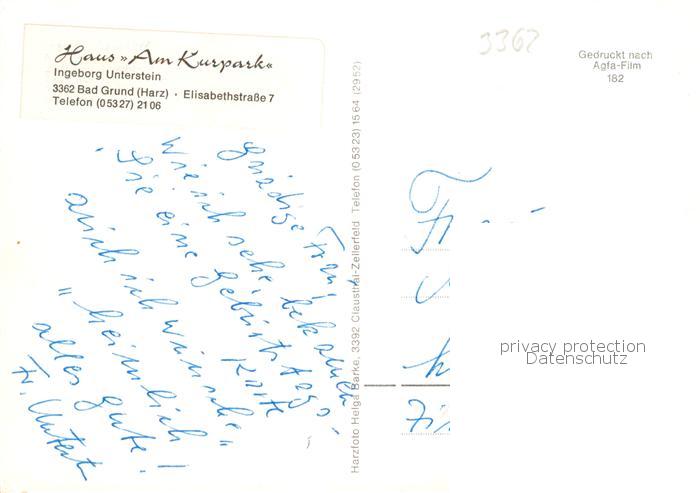 Haus »Am Kurpark«
Ingeborg Unterstein
3362 Bad Grund (Harz) · Elisabethstraße 7
Telefon (05327) 2106
3362
Gedruckt nach
Agfa-Film
182
gnädige Frau!
wie ich sehe, bekamen
Sie eine Geburtstags-
karte
auch ich wünsche
"heimlich"
alles gute!
Fr.
Harzfoto Helga Barke, 3392 Clausthal-Zellerfeld Telefon (05323) 1564 (2952)
privacy protection
Datenschutz